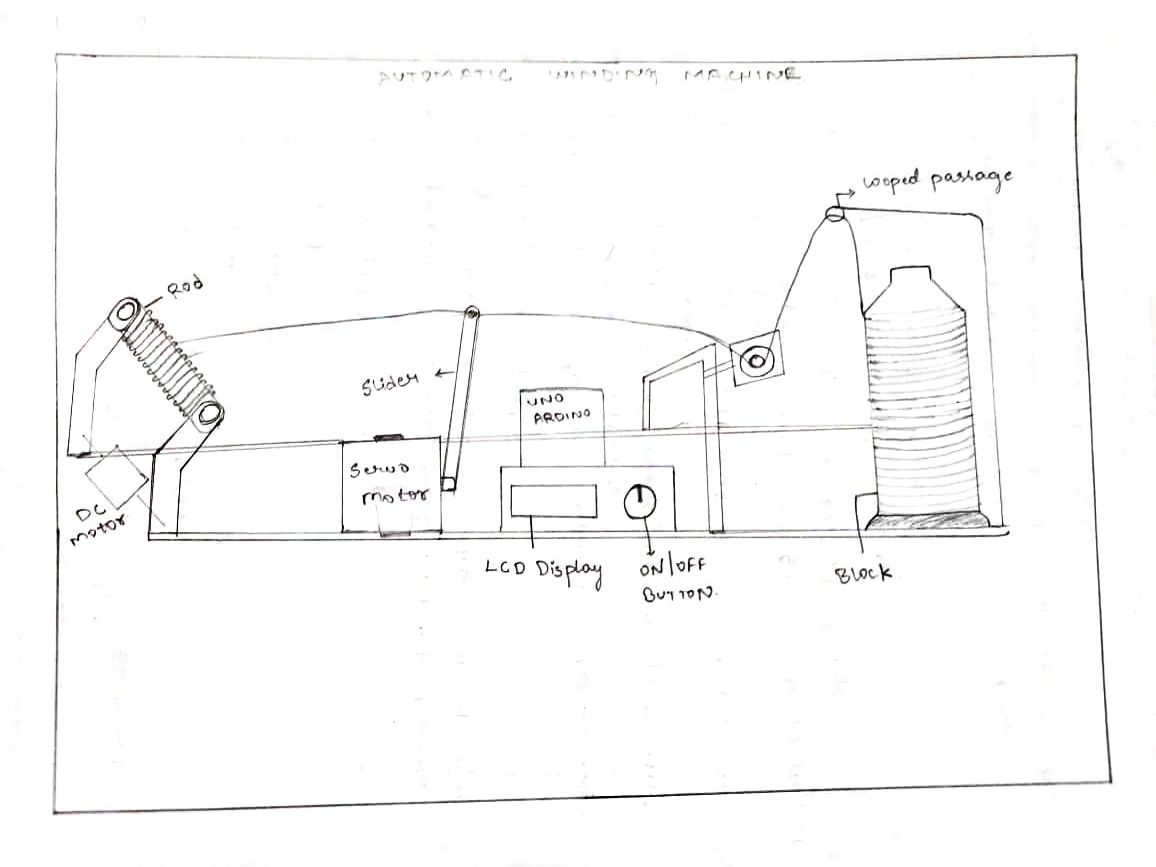 AUTOMATIC WINDING MACHINE
Looped passage
Rod
Slider
UNO
ARDINO
Servo
Motor
DC
Motor
LCD Display
ON/OFF
BUTTON.
BLOCK